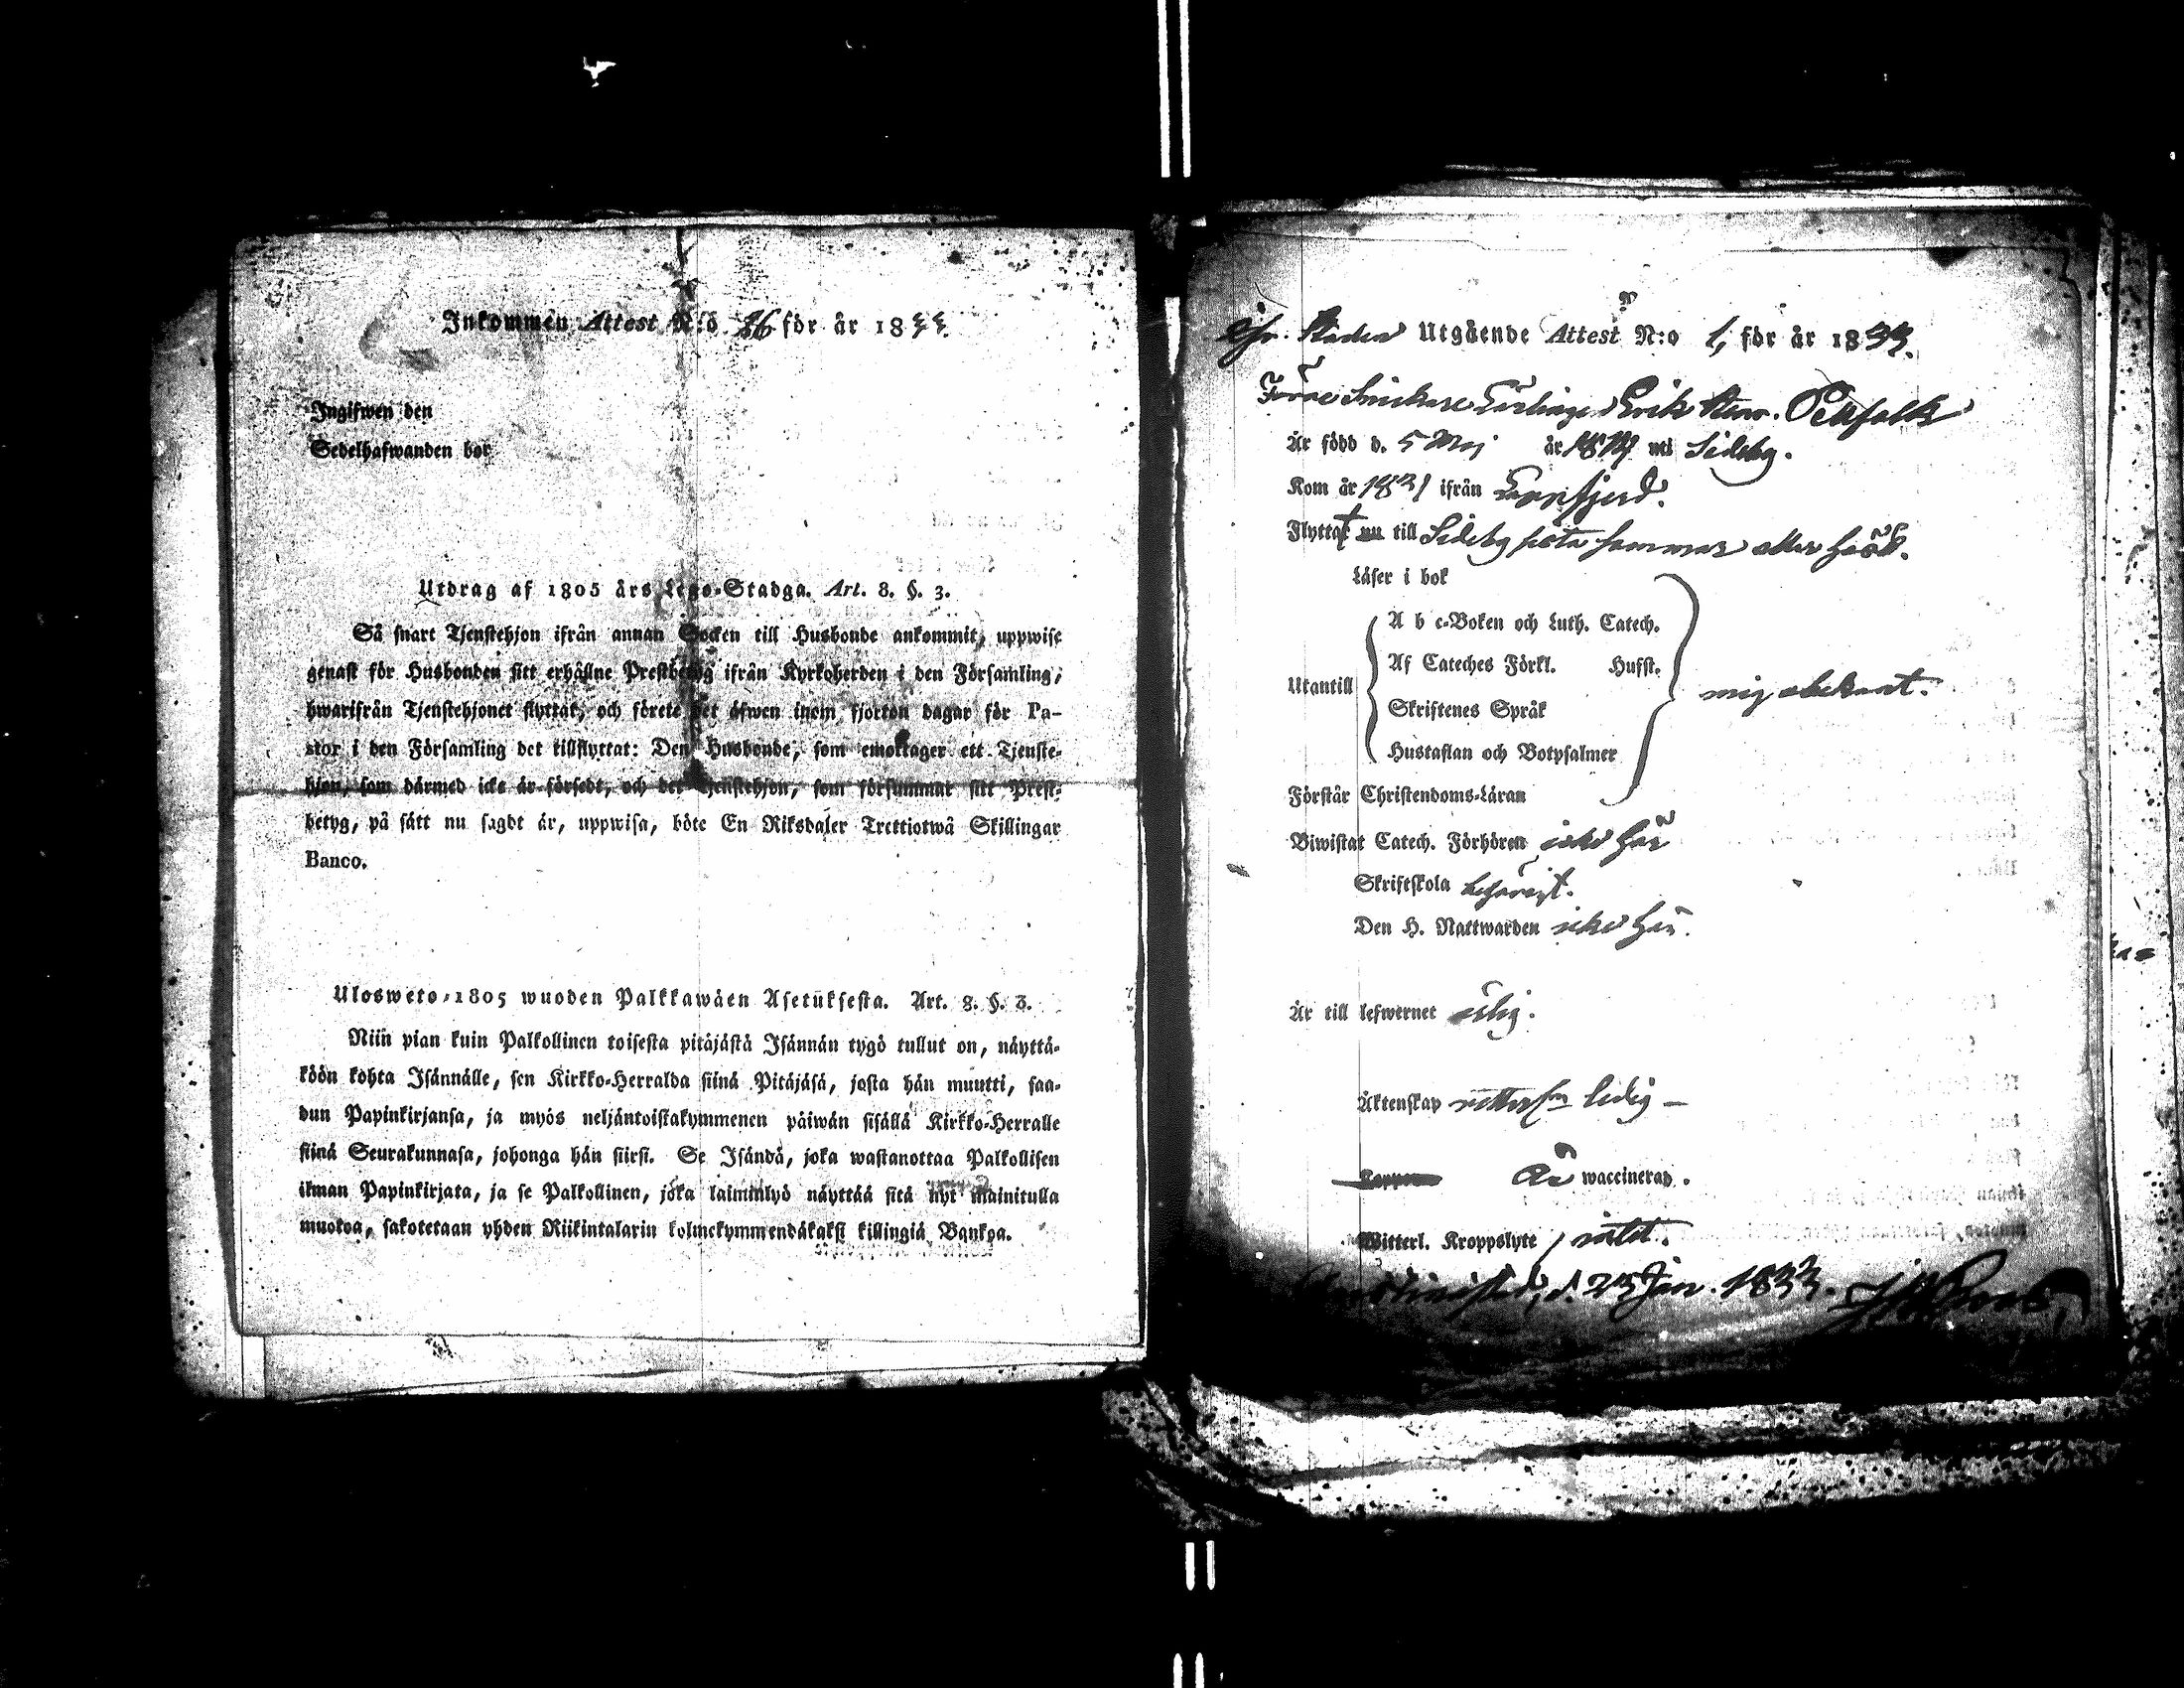 Inkommen Attest N:o 26 för år 1833.
Ingifwen den
Sedelhafwanden bor
Utdrag af 1805 års Lego-Stadga. Art. 8. §. 3.
Så snart Tjenstehjon ifrån annan Socken till Husbonde ankommit, uppwise
genast för Husbonden sitt erhållne Prestbetyg ifrån Kyrkoherden i den Församling,
hwarifrån Tjenstehjonet flyttat, och förete det äfwen inom fjorton dagar för Pa-
stor i den Församling det tillflyttat: Den Husbonde, som emottager ett Tjenste-
hjon, som därmed icke är försedt, och det Tjenstehjon, som försummar sitt Prest-
betyg, på sätt nu sagdt är, uppwisa, böte En Riksdaler Trettiotwå Skillingar
Banco.
Ulosweto-1805 wuoden Palkkawäen Asetuksesta. Art. 8. §. 3.
Niin pian kuin Palkollinen toisesta pitäjästä Isännän tygö tullut on, näyttä-
köön kohta Isännälle, sen Kirkko-Herralda siinä Pitäjäsä, josta hän muutti, saa-
dun Papinkirjansa, ja myös neljäntoistakymmenen päiwän sisällä Kirkko-Herralle
siinä Seurakunnasa, johonga hän siirsi. Se Isändä, joka wastanottaa Palkollisen
ilman Papinkirjata, ja se Palkollinen, joka laiminlyö näyttää sitä nyt mainitulla
muotoa, sakotetaan yhden Riikintalarin kolmekymmendäkaksi killingiä Bankoa.
Utgående Attest N:o 1, för år 1833.
Förre Snickare Lärlingen Erik Pellfolk
Är född d. 5 Maj år uti Sideby.
Kom år 1831 ifrån Lappfjerd.
Flyttat nu till Sideby sista sommar eller höst.
Läser i bok
Utantill
A b c-Boken och Luth. Catech.
Af Cateches Förkl. Hufst.
Skriftenes Språk
Hustaflan och Botpsalmer
mig obekant.
Förstår Christendoms-Läran
Biwistat Catech. Förhören icke här
Skriftskola behörigt.
Den H. Nattwarden icke här.
Är till lefwernet ärlig.
Äktenskap ledig —
Koppor Är waccinerad.
Witterl. Kroppslyte / intet.
Christinestad, d. 25 Jan. 1833.